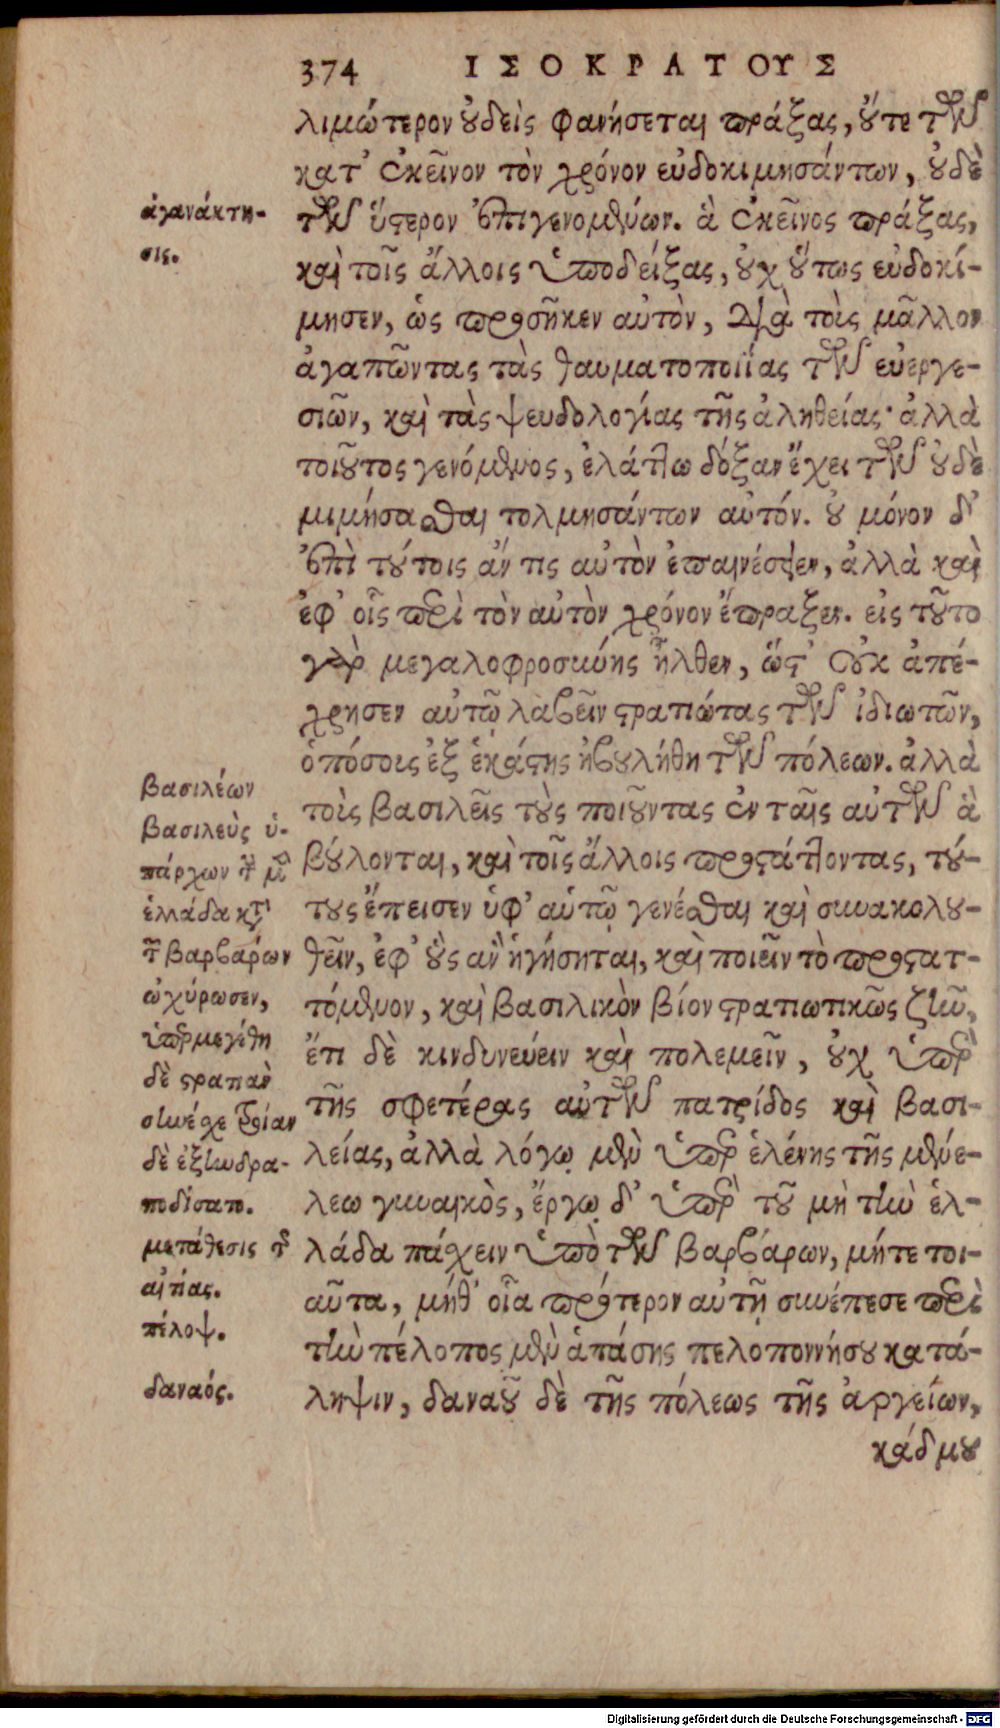 374 ΙΣΟΚΡΑΤΟΥΣ
λιμώτερον οὐδεὶς φανήσεται πράξας, οὔτε τῶν
κατ' ἐκεῖνον τὸν χρόνον εὐδοκιμησάντων, οὐδὲ
τῶν ὕστερον ἐπιγενομένων. ἃ ἐκεῖνος πράξας,
καὶ τοῖς ἄλλοις ὑποδείξας, οὐχ οὕτως εὐδοκί-
μησεν, ὡς προσῆκεν αὐτὸν, διὰ τοὺς μᾶλλον
ἀγαπῶντας τὰς θαυματοποιίας τῶν εὐεργε-
σιῶν, καὶ τὰς ψευδολογίας τῆς ἀληθείας· ἀλλὰ
τοιοῦτος γενόμενος, ἐλάττω δόξαν ἔχει τῶν οὐδὲ
μιμήσασθαι τολμησάντων αὐτόν. οὐ μόνον δ'
ἐπὶ τούτοις ἄν τις αὐτὸν ἐπαινέσειεν, ἀλλὰ καὶ
ἐφ' οἷς περὶ τὸν αὐτὸν χρόνον ἔπραξεν. εἰς τοῦτο
γὰρ μεγαλοφροσύνης ἦλθεν, ὥστ' οὐκ ἀπέ-
χρησεν αὐτῷ λαβεῖν στρατιώτας τῶν ἰδιωτῶν,
ὁπόσοις ἐξ ἑκάστης ἠβουλήθη τῶν πόλεων. ἀλλὰ
τοὺς βασιλεῖς τοὺς ποιοῦντας ἐν ταῖς αὑτῶν ἃ
βούλονται, καὶ τοῖς ἄλλοις προστάττοντας, τού-
τους ἔπεισεν ὑφ' αὑτῷ γενέσθαι καὶ συνακολου-
θεῖν, ἐφ' οὓς ἂν ἡγήσηται, καὶ ποιεῖν τὸ προστατ-
τόμενον, καὶ βασιλικὸν βίον στρατιωτικῶς ζῆν,
ἔτι δὲ κινδυνεύειν καὶ πολεμεῖν, οὐχ ὑπὲρ
τῆς σφετέρας αὐτῶν πατρίδος καὶ βασι-
λείας, ἀλλὰ λόγῳ μὲν ὑπὲρ ἑλένης τῆς μενέ-
λεω γυναικὸς, ἔργῳ δ' ὑπὲρ τοῦ μὴ τὴν ἑλ-
λάδα πάσχειν ὑπὸ τῶν βαρβάρων, μήτε τοι-
αῦτα, μήθ' οἷα πρότερον αὐτῇ συνέπεσε περὶ
τὴν πέλοπος μὲν ἁπάσης πελοποννήσου κατά-
ληψιν, δαναοῦ δὲ τῆς πόλεως τῆς ἀργείων,
κάδμου
ἀγανάκτη-
σις.
βασιλέων
βασιλεὺς ὑ-
πάρχων τὴν μὲν
ἑλλάδα κατὰ
τῶν βαρβάρων
ὠχύρωσεν,
ὑπερμεγέθη
δὲ στρατιὰν
συνέσχε
δὲ ἐξηνδρα-
ποδίσατο.
μετάθεσις τῆς
αἰτίας.
πέλοψ.
δαναός.
Digitalisierung gefördert durch die Deutsche Forschungsgemeinschaft - DFG